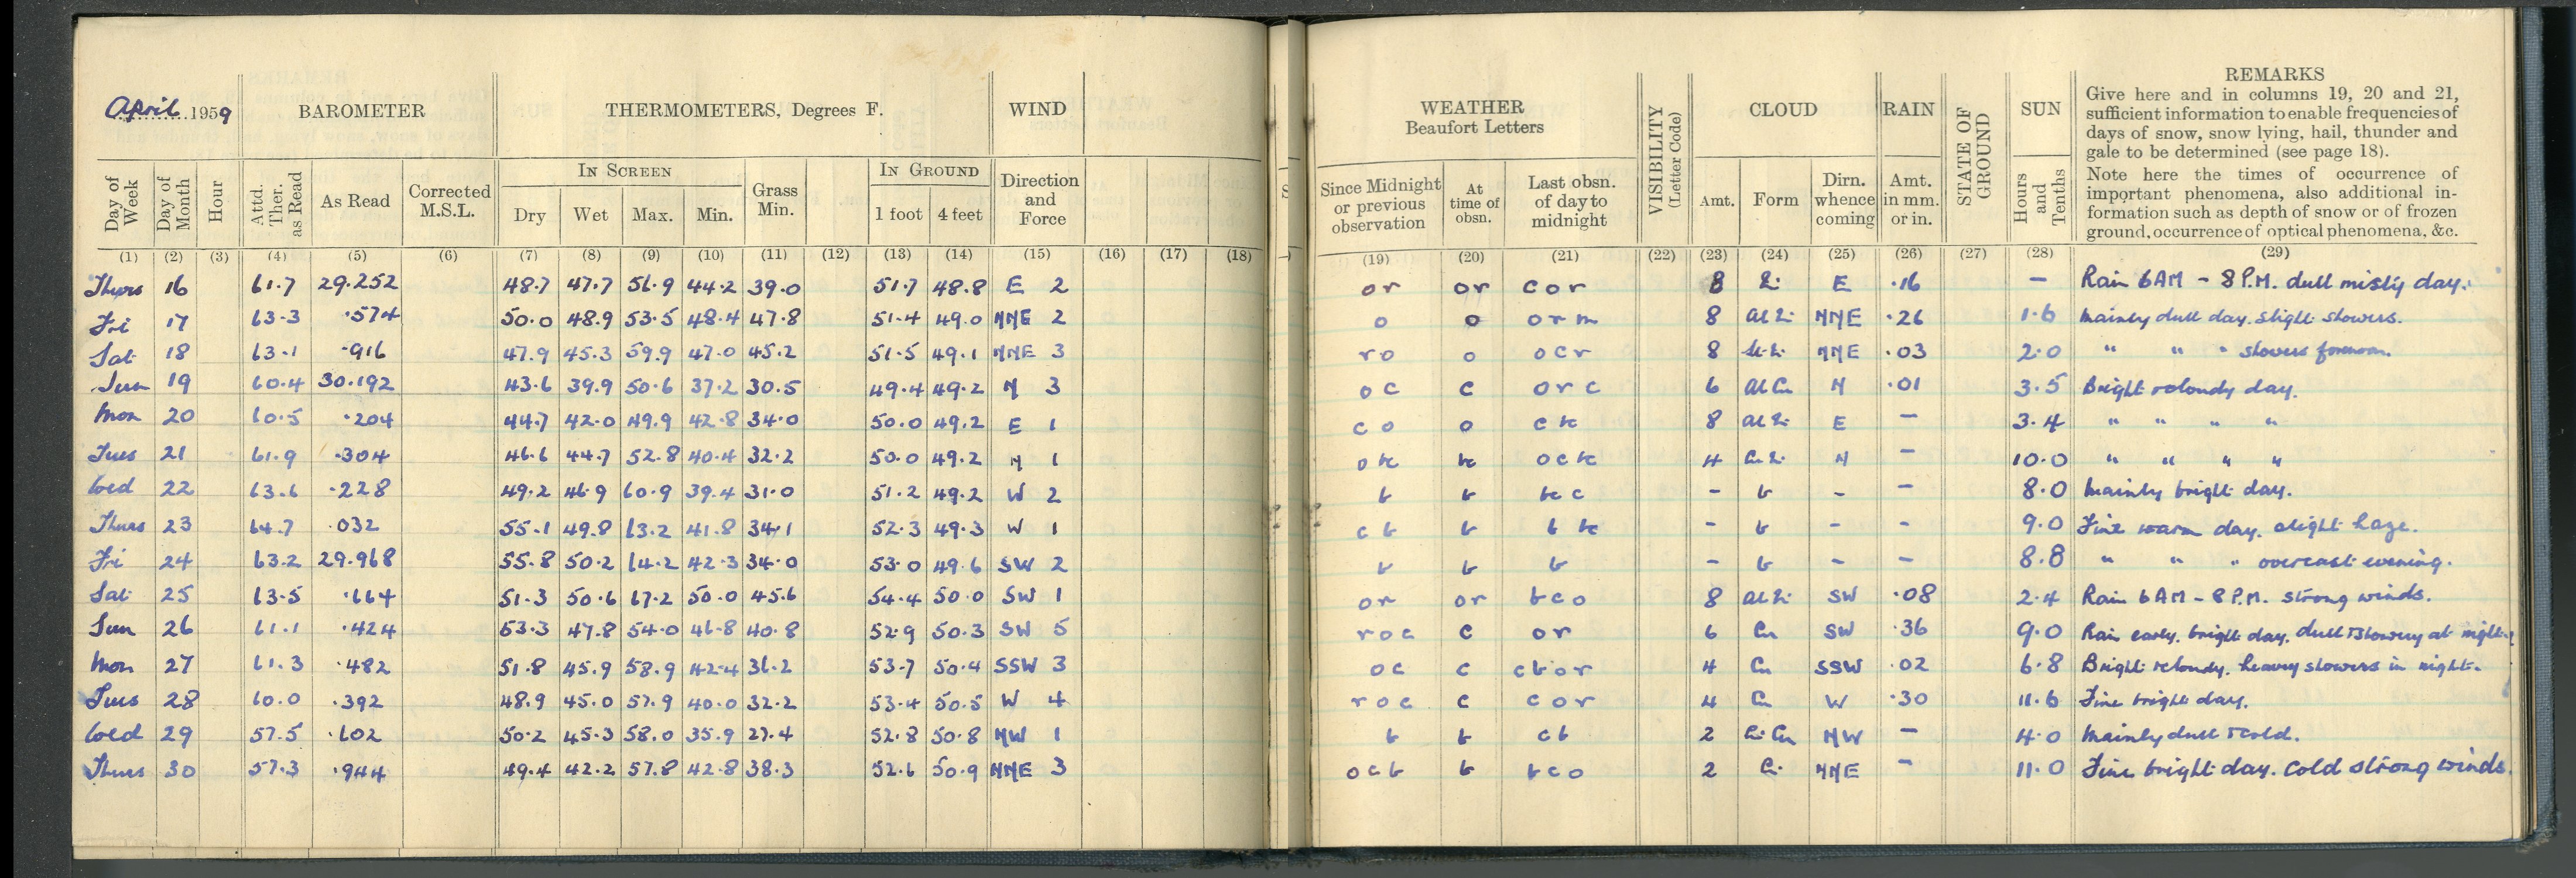 April 1959 BAROMETER THERMOMETERS, Degrees F. WIND WEATHER Beaufort Letters VISIBILITY (Letter Code) CLOUD RAIN STATE OF GROUND SUN REMARKS
Give here and in columns 19, 20 and 21,
sufficient information to enable frequencies of
days of snow, snow lying, hail, thunder and
gale to be determined (see page 18).
Note here the times of occurrence of
important phenomena, also additional in-
formation such as depth of snow or of frozen
ground, occurrence of optical phenomena, &c.
Day of Week Day of Month Hour Attd. Ther. as Read As Read Corrected M.S.L. IN SCREEN Dry Wet Max. Min. Grass Min. IN GROUND 1 foot 4 feet Direction and Force Since Midnight or previous observation At time of obsn. Last obsn. of day to midnight Amt. Form Dirn. whence coming Amt. in mm. or in. Hours and Tenths
(1) (2) (3) (4) (5) (6) (7) (8) (9) (10) (11) (12) (13) (14) (15) (16) (17) (18) (19) (20) (21) (22) (23) (24) (25) (26) (27) (28) (29)
Thurs 16 61.7 29.252 48.7 47.7 56.9 44.2 39.0 51.7 48.8 E 2 or or cor 8 E .16 — Rain 6AM - 8P.M. dull misty day.
Fri 17 63.3 .574 50.0 48.9 53.5 48.4 47.8 51.4 49.0 NNE 2 o o orm 8 NNE .26 1.6 Mainly dull day. slight showers.
Sat 18 63.1 .916 47.9 45.3 59.9 47.0 45.2 51.5 49.1 NNE 3 ro o ocr 8 NNE .03 2.0 " " " showers forenoon.
Sun 19 60.4 30.192 43.6 39.9 50.6 37.2 30.5 49.4 49.2 N 3 oc c orc 6 Al Cu N .01 3.5 Bright & cloudy day.
Mon 20 60.5 .204 44.7 42.0 49.9 42.8 34.0 50.0 49.2 E 1 co o 8 E — 3.4 " " " "
Tues 21 61.9 .304 46.6 44.7 52.8 40.4 32.2 50.0 49.2 N 1 4 N — 10.0 " " " "
Wed 22 63.6 .228 49.2 46.9 60.9 39.4 31.0 51.2 49.2 W 2 b b bc c - b - — 8.0 Mainly bright day.
Thurs 23 64.7 .032 55.1 49.8 63.2 41.8 34.1 52.3 49.3 W 1 cb b b bc - b - - 9.0 Fine warm day. slight haze.
Fri 24 63.2 29.968 55.8 50.2 64.2 42.3 34.0 53.0 49.6 SW 2 b b b - b - - 8.8 " " " overcast evening.
Sat 25 63.5 .664 51.3 50.6 67.2 50.0 45.6 54.4 50.0 SW 1 or or bco 8 SW .08 2.4 Rain 6AM - 8P.M. strong winds.
Sun 26 61.1 .424 53.3 47.8 54.0 46.8 40.8 52.9 50.3 SW 5 roc c or 6 Cu SW .36 9.0 Rain early. bright day. dull & showery at night.
Mon 27 61.3 .482 51.8 45.9 58.9 42.4 36.2 53.7 50.4 SSW 3 oc c cbor 4 Cu SSW .02 6.8 Bright & cloudy. heavy showers in night.
Tues 28 60.0 .392 48.9 45.0 57.9 40.0 32.2 53.4 50.5 W 4 roc c cor 4 Cu W .30 11.6 Fine bright day.
Wed 29 57.5 .602 50.2 45.3 58.0 35.9 27.4 52.8 50.8 NW 1 b b cb 2 Ci Cu NW — 4.0 Mainly dull & cold.
Thurs 30 57.3 .944 49.4 42.2 57.8 42.8 38.3 52.6 50.9 NNE 3 ocb b bco 2 Ci NNE — 11.0 Fine bright day. Cold strong winds.